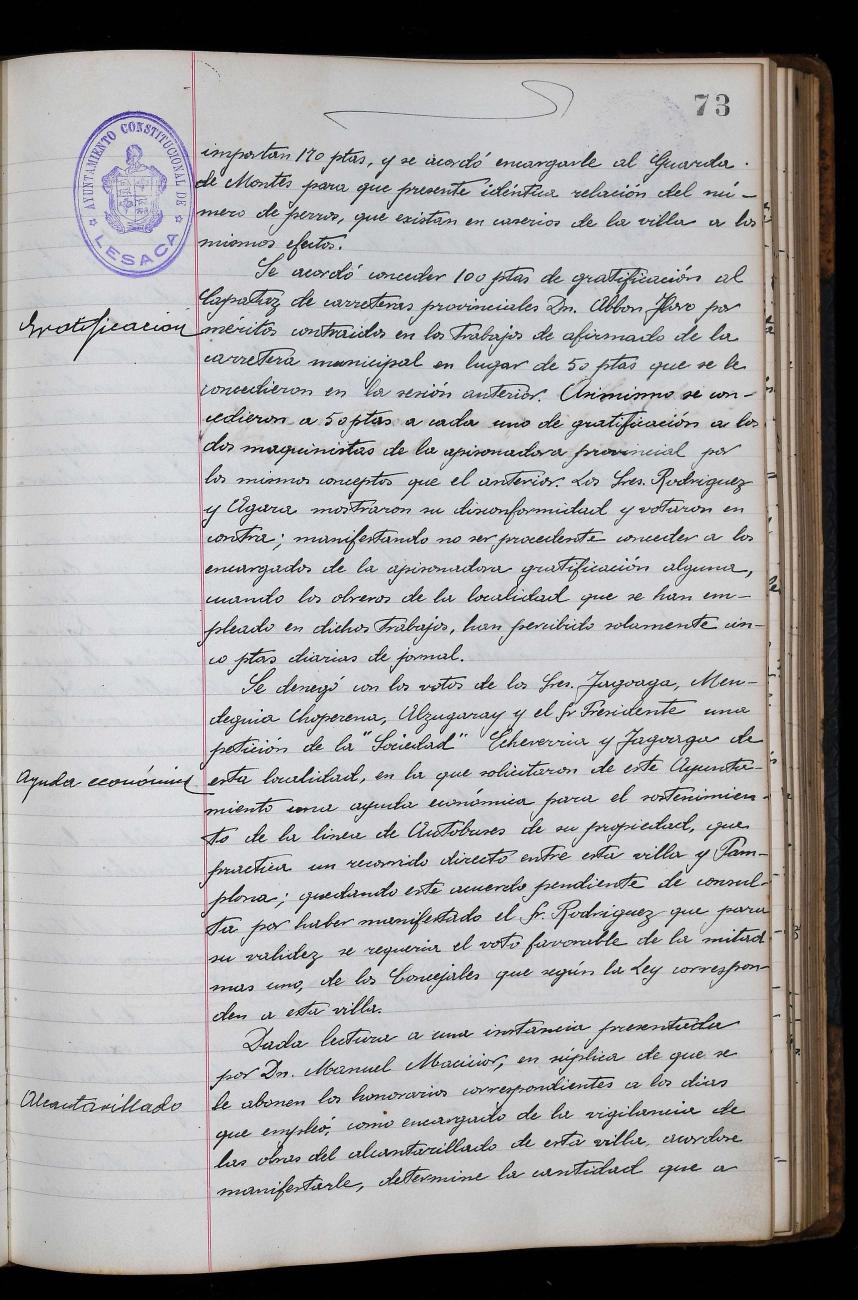 73
AYUNTAMIENTO CONSTITUCIONAL DE
LESACA
importan 170 ptas, y se acordó encargarle al Guarda
de Montes para que presente idéntica relación del nú-
mero de perros, que existan en caserios de la villa a los
mismos efectos.
Se acordó conceder 100 ptas de gratificación al
Gratificación
Capataz de carreteras provinciales Dn. Abbon Haro por
méritos contraidos en los trabajos de afirmado de la
carretera municipal en lugar de 50 ptas que se le
concedieron en la sesión anterior. Asimismo se con-
cedieron a 50 ptas a cada uno de gratificación a los
dos maquinistas de la apisonadora provincial por
los mismos conceptos que el anterior. Los Sres. Rodriguez
y Agara mostraron su disconformidad y votaron en
contra; manifestando no ser procedente conceder a los
encargados de la apisonadora gratificación alguna,
cuando los obreros de la localidad que se han em-
pleado en dichos trabajos, han percibido solamente cin-
co ptas diarias de jornal.
Se denegó con los votos de los Sres. Jagoaga, Men-
deguia Choperena, Elzugaray y el Sr Presidente una
petición de la "Sociedad" Echeverria y Jagoaga de
Ayuda económica
esta localidad, en la que solicitaron de este Ayunta-
miento una ayuda económica para el sostenimien-
to de la linea de Autobuses de su propiedad, que
practica un recorrido directo entre esta villa y Pam-
plona; quedando este acuerdo pendiente de consul-
ta por haber manifestado el Sr. Rodriguez que para
su validez se requeria el voto favorable de la mitad
mas uno, de los Concejales que según la Ley correspon-
den a esta villa.
Dada lectura a una instancia presentada
por Dn. Manuel Macicior, en súplica de que se
Alcantarillado
le abonen los honorarios correspondientes a los dias
que empleó, como encargado de la vigilancia de
las obras del alcantarillado de esta villa, acordose
manifestarle, determine la cantidad que a